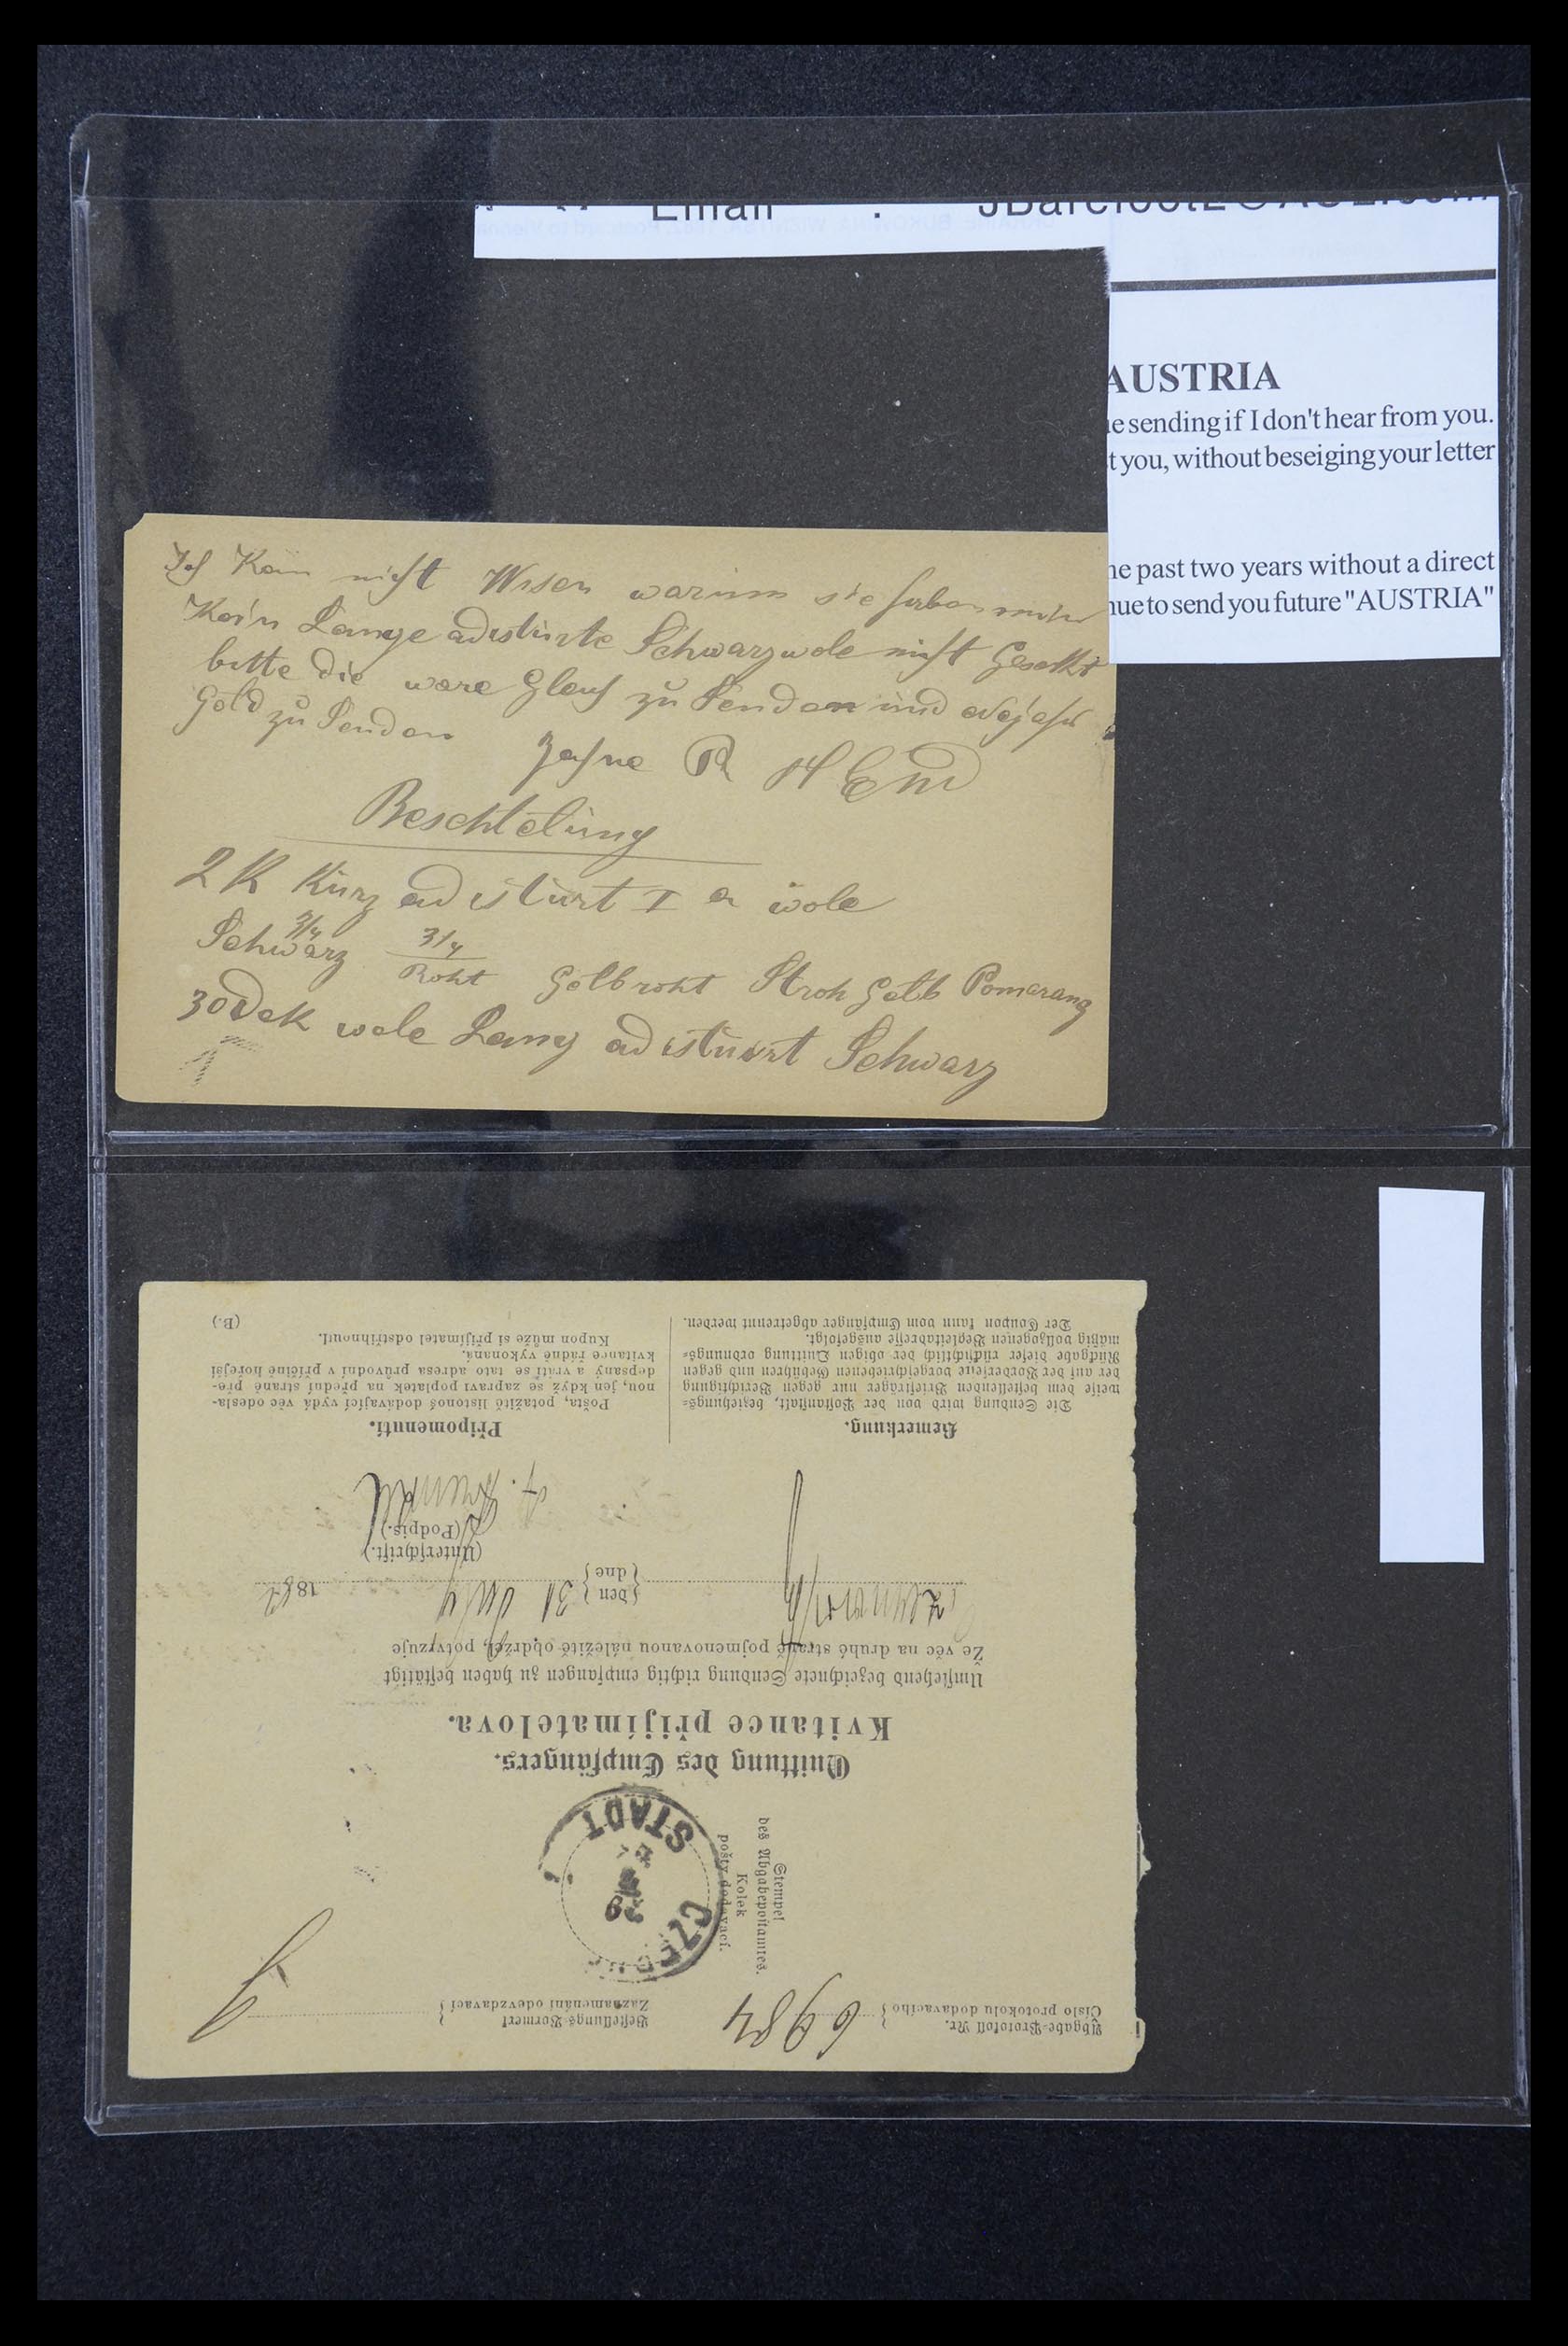 Email : JBarefootL@AOL.com
AUSTRIA
e sending if I don't hear from you.
t you, without beseiging your letter
he past two years without a direct
nue to send you future "AUSTRIA"
Ich Kan nicht Wisen warum sie haben mir
Kein Lange adistirte Schwarz wole nicht
bitte die ware gleich zu Senden und
Geld zu Senden
Beschtelung
2 K Kurz adistirt I a wole
Schwarz 3/4 3/4 Roht Gelbroht Stroh Gelb Pomeranz
30 Dek wole Lang adistirt Schwarz
Abgabe-Protokoll Nr.
Číslo protokolu dodavacího
6984
Bestellungs-Vormerk
Zaznamenání odevzdavací
Stempel
des Abgabepostamtes.
Kolek
pošty dodavací.
STADT
29
Quittung des Empfängers.
Kvitance přijímatelova.
Umstehend bezeichnete Sendung richtig empfangen zu haben bestätigt
Že věc na druhé straně pojmenovanou náležitě obdržel, potvrzuje
den
dne
31 July 1882
(Unterschrift.)
(Podpis.)
Bemerkung.
Die Sendung wird von der Postanstalt, beziehungs-
weise dem bestellenden Briefträger nur gegen Berichtigung
der auf der Vorderseite vorgeschriebenen Gebühren und gegen
Rückgabe dieser rücksichtlich der obigen Quittung ordnungs-
mäßig vollzogenen Begleitadresse ausgefolgt.
Der Coupon kann vom Empfänger abgetrennt werden.
Připomenutí.
Pošta, potažitě listonoš dodávající vydá věc odesla-
nou, jen když se zapraví poplatek na přední straně pře-
depsaný a vrátí se tato adresa průvodní v příčině hořejší
kvitance řádně vykonaná.
Kupon může si přijímatel odstřihnouti.
(B.)